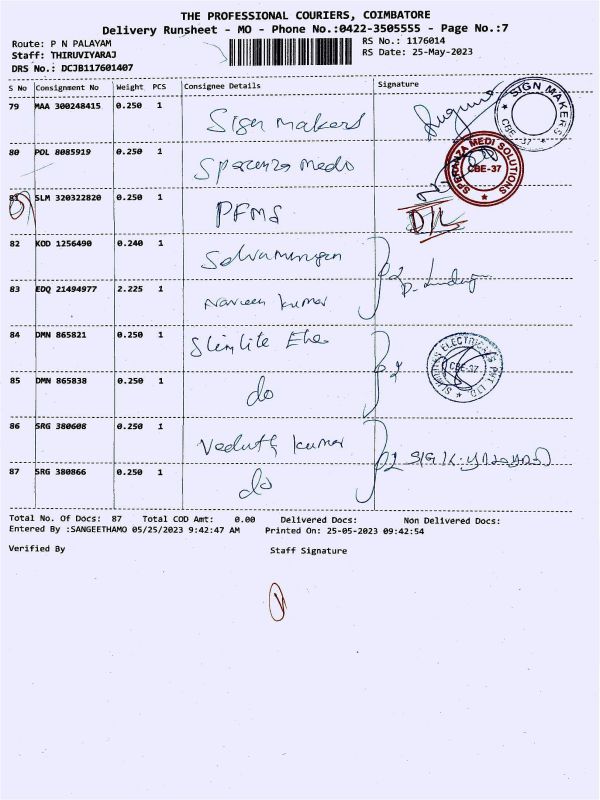 THE PROFESSIONAL COURIERS, COIMBATORE
Delivery Runsheet - MO - Phone No.:0422-3505555 - Page No.:7
Route: P N PALAYAM RS No.: 1176014
Staff: THIRUVIYARAJ RS Date: 25-May-2023
DRS No.: DCJB117601407
S No Consignment No Weight PCS Consignee Details Signature
79 MAA 300248415 0.250 1 Sign makers
SIGN MAKERS CBE-37
80 POL 8085919 0.250 1 Speranza medo
SPERANZA MEDI SOLUTIONS CBE-37
81 SLM 320322820 0.250 1 PFMS
82 KOD 1256490 0.240 1 Selvamurugan
83 EDQ 21494977 2.225 1 Naveen kumar
84 DMN 865821 0.250 1 Slimlite Ele
CBE-37
85 DMN 865838 0.250 1 do
86 SRG 380608 0.250 1 kumar
87 SRG 380866 0.250 1 do
Total No. Of Docs: 87 Total COD Amt: 0.00 Delivered Docs: Non Delivered Docs:
Entered By :SANGEETHAMO 05/25/2023 9:42:47 AM Printed On: 25-05-2023 09:42:54
Verified By Staff Signature